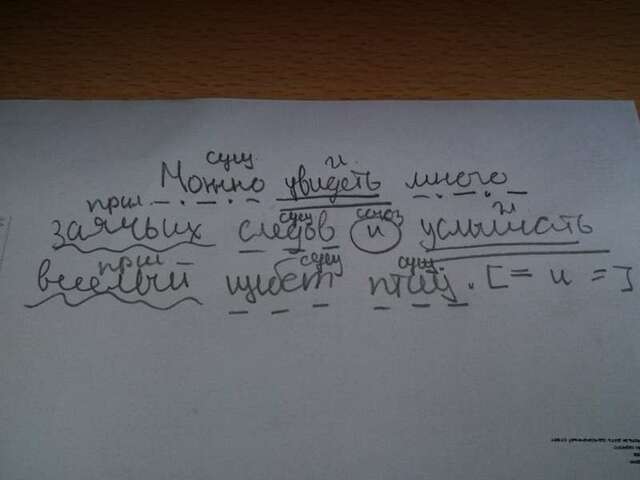 сущ. г.
Можно увидеть много
прил. сущ союз г.
заячьих следов и услышать
прил сущ сущ.
веселый щебет птиц. [= и =]